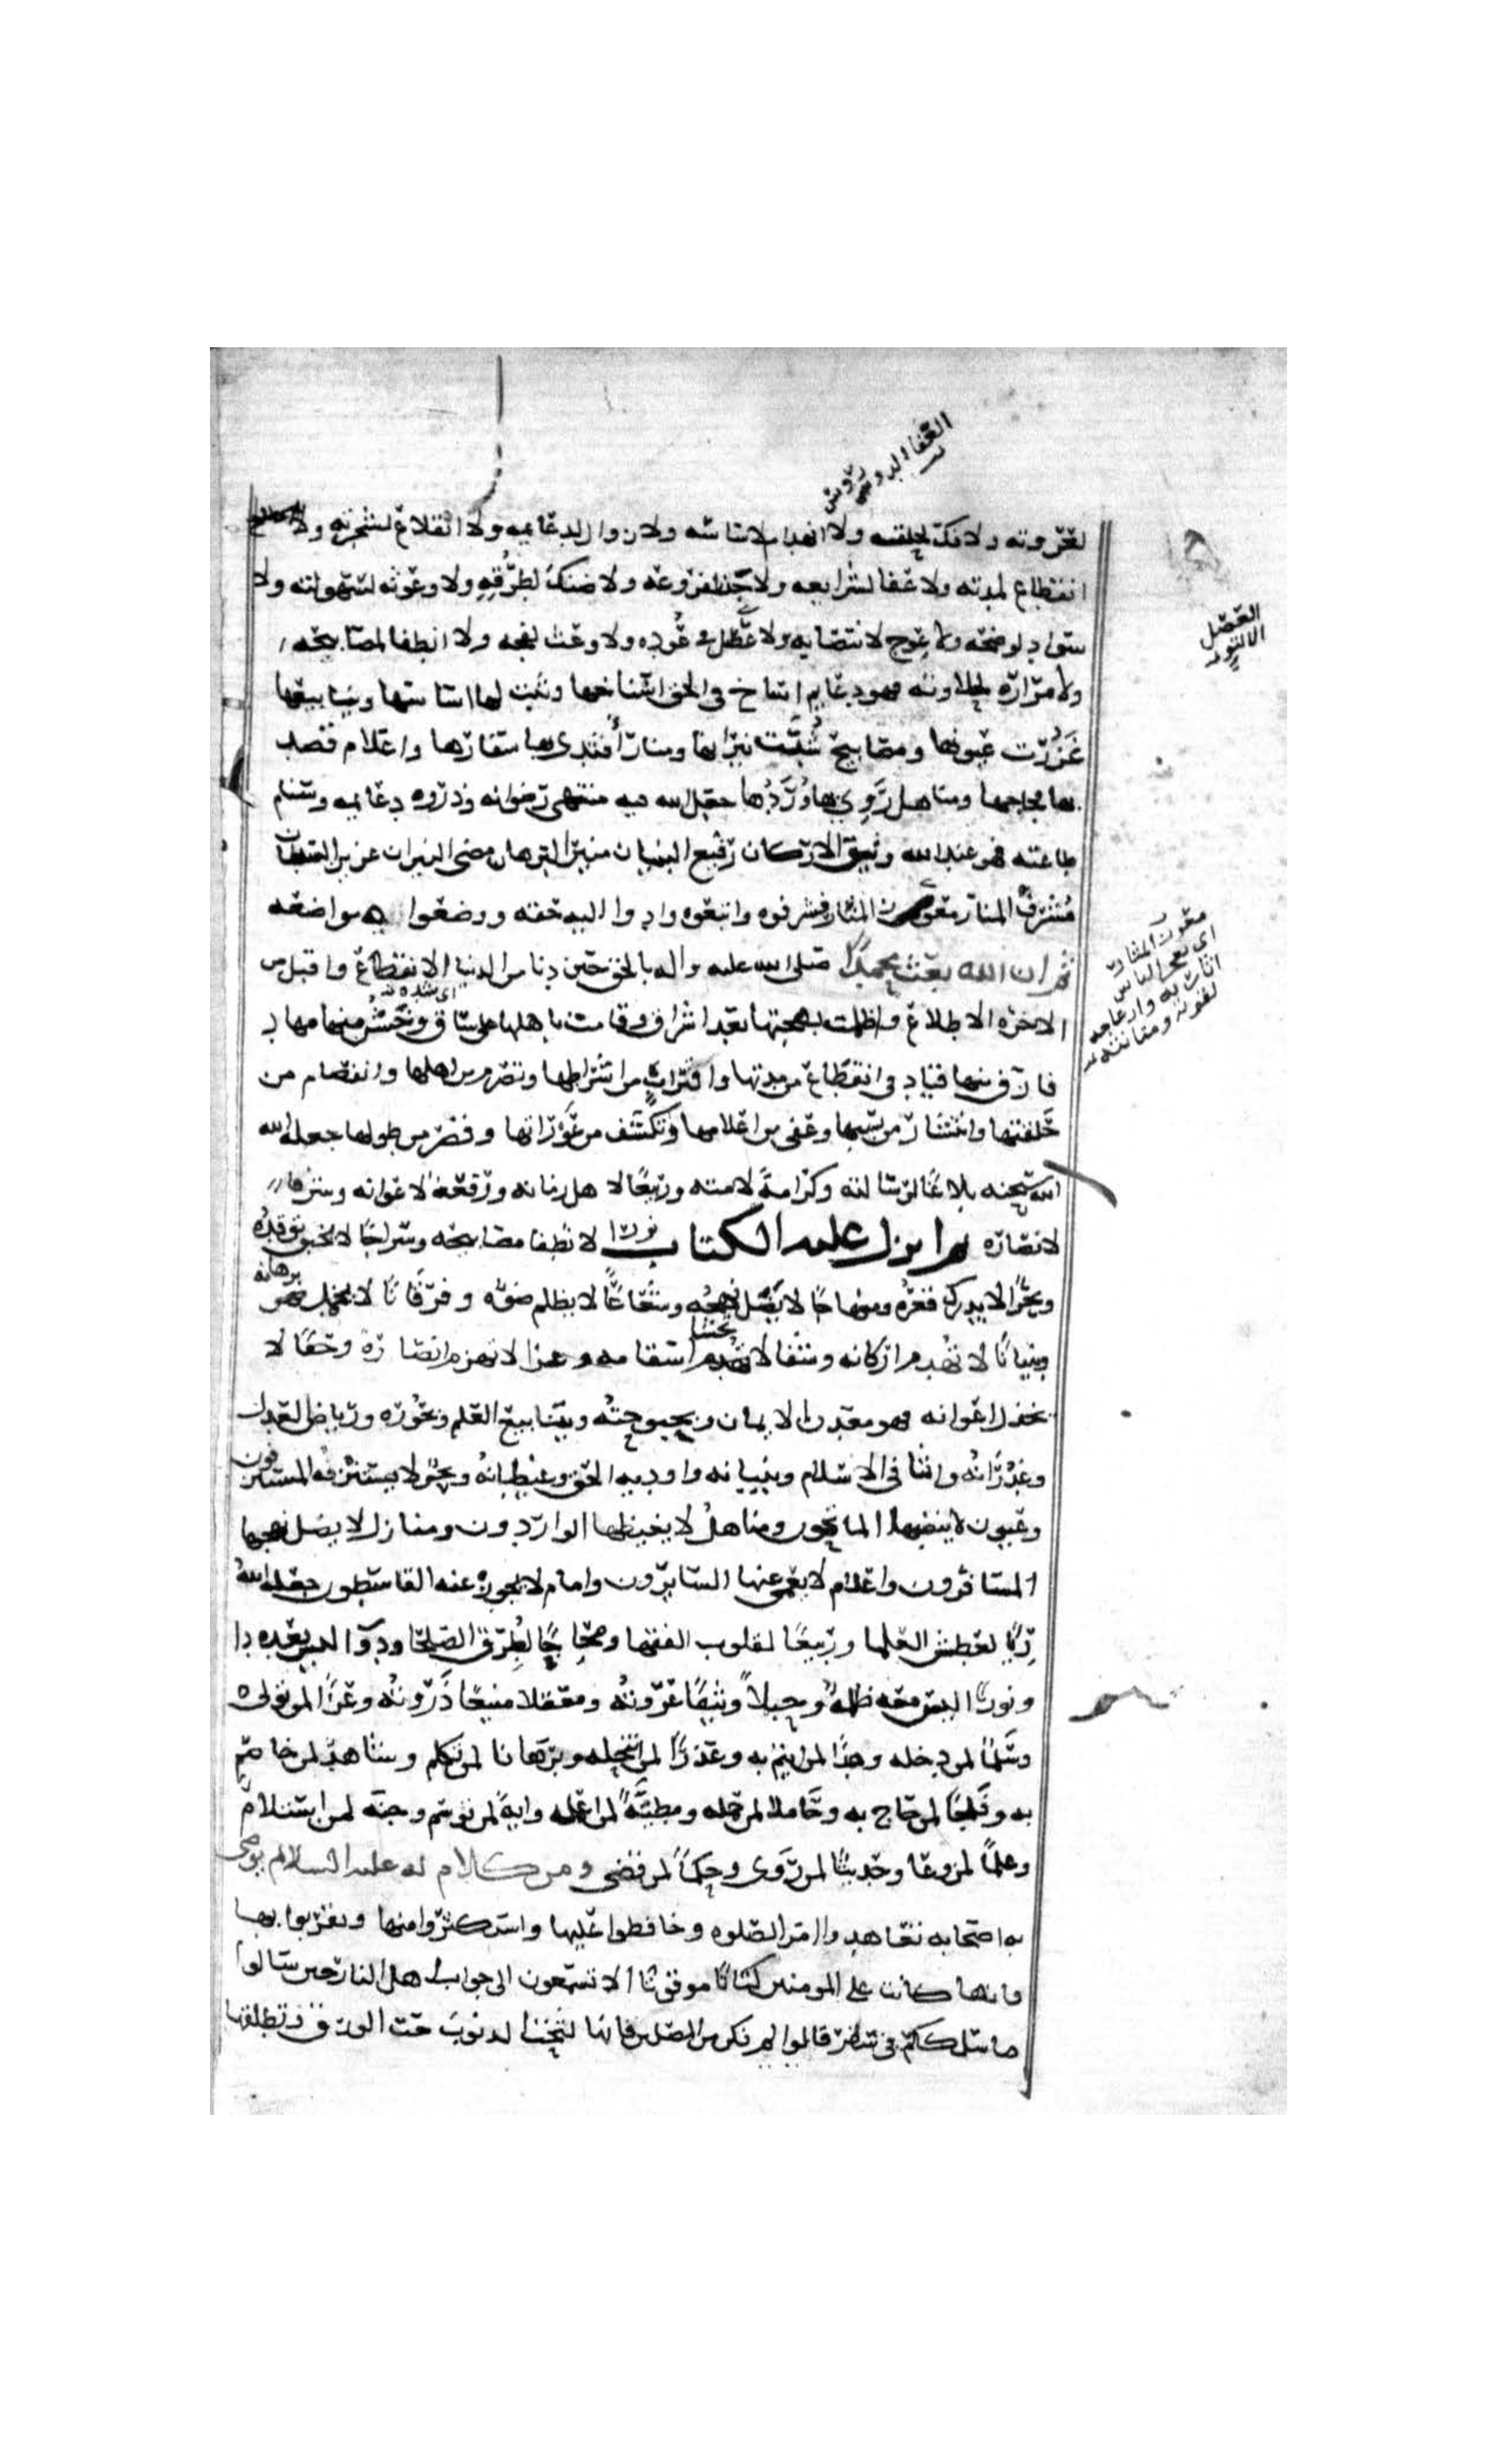 العفا الدروس
دروس
لعروته ولا فك لحلقته ولا انهدام لاساسه ولا زوال لدعايمه ولا انقلاع لشجرته ولا
انقطاع لمدته ولا عفا لشرايعه ولا جذ لفروعه ولا ضنك لطرقه ولا وعوثه لسهولته ولا
سواد لوضحه ولا عوج لانتصابه ولا عصل في عوده ولا وعث لفجه ولا انطفا لمصابيحه
العصل
الالتوا
ولا مراره لحلاوته فهو دعايم اساخ في الحق اسناخها وثبت لها اساسها وينابيع
غزرت عيونها ومصابيح شبت نيرانها ومنار اقتدى بها سفارها واعلام قصد
بها فجاجها ومناهل روي بها ورادها جعل الله فيه منتهى رضوانه وذروه دعايمه وسنام
طاعته فهو عند الله وثيق الاركان رفيع البنيان منير البرهان مضي النيران عزيز السلطان
مشرف المنار معوذ المثار فشرفوه واتبعوه وادوا اليه حقه وضعوا مواضعه
معوذ المثار
اي يعجز الناس
اثارته وازعاجه
لقوته ومتانته
ثم ان الله بعث محمدا صلى الله عليه واله بالحق حين دنا من الدنيا الانقطاع واقبل من
الاخره الاطلاع واظلمت بهجتها بعد اشراق وقامت باهلها على ساق وخشن منها مهاد
اي شده
فازف منها قياد في انقطاع من مدتها واقتراب من اشراطها وتصرم من اهلها وانفصام من
حلقتها وانتشار من سببها وعفى من اعلامها وتكشف من عوراتها وقصر من طولها جعله الله
الله سبحنه بلاغا لرسالته وكرامة لامته وربيعا لاهل زمانه ورفعة لاعوانه وشرفا
لانصاره ثم انزل عليه الكتاب نورا لا تطفا مصابيحه وسراجا لا يخبو توقده
وبحرا لا يدرك قعره ومنهاجا لا يضل نهجه وشعاعا لا يظلم ضوه وفرقانا لا يخمد برهانه
وبنيانا لا تهدم اركانه وشفا لا تخشى اسقامه وعزا لا تهزم انصاره وحقا لا
تخذل اعوانه فهو معدن الايمان وبحبوحته وينابيع العلم وبحوره ورياض العدل
وغدرانه واثافي الاسلام وبنيانه واوديه الحق وغيطانه وبحر لا يستنزفه المستنزفون
وعيون لا ينضبها الماتحون ومناهل لا يغيضها الواردون ومنازل لا يضل نهجها
المسافرون واعلام لا يعمى عنها السايرون وامام لا يجوز عنه القاصدون جعله الله
ريا لعطش العلما وربيعا لقلوب الفقها ومحاج لطرق الصلحا ودوآ ليس بعده دا
ونورا ليس معه ظلمة وحبلا وثيقا عروته ومعقلا منيعا ذروته وعزا لمن تولاه
وسلما لمن دخله وهدا لمن ايتم به وعذرا لمن انتحله وبرهانا لمن تكلم وشاهدا لمن خاصم
به وفلجا لمن حاج به وحاملا لمن حمله ومطية لمن اعمله واية لمن توسم وجنة لمن استلام
وعلما لمن وعا وحديثا لمن روى وحكما لمن قضى ومن كلام له عليه السلام يوصي
به اصحابه تعاهدوا امر الصلوه وحافظوا عليها واستكثروا منها وتقربوا بها
فانها كانت على المومنين كتابا موقوتا الا تسمعون الى جواب اهل النار حين سالوا
ما سلككم في سقر قالوا لم نكن من المصلين فانها لتحت الذنوب حت الورق وتطلقها